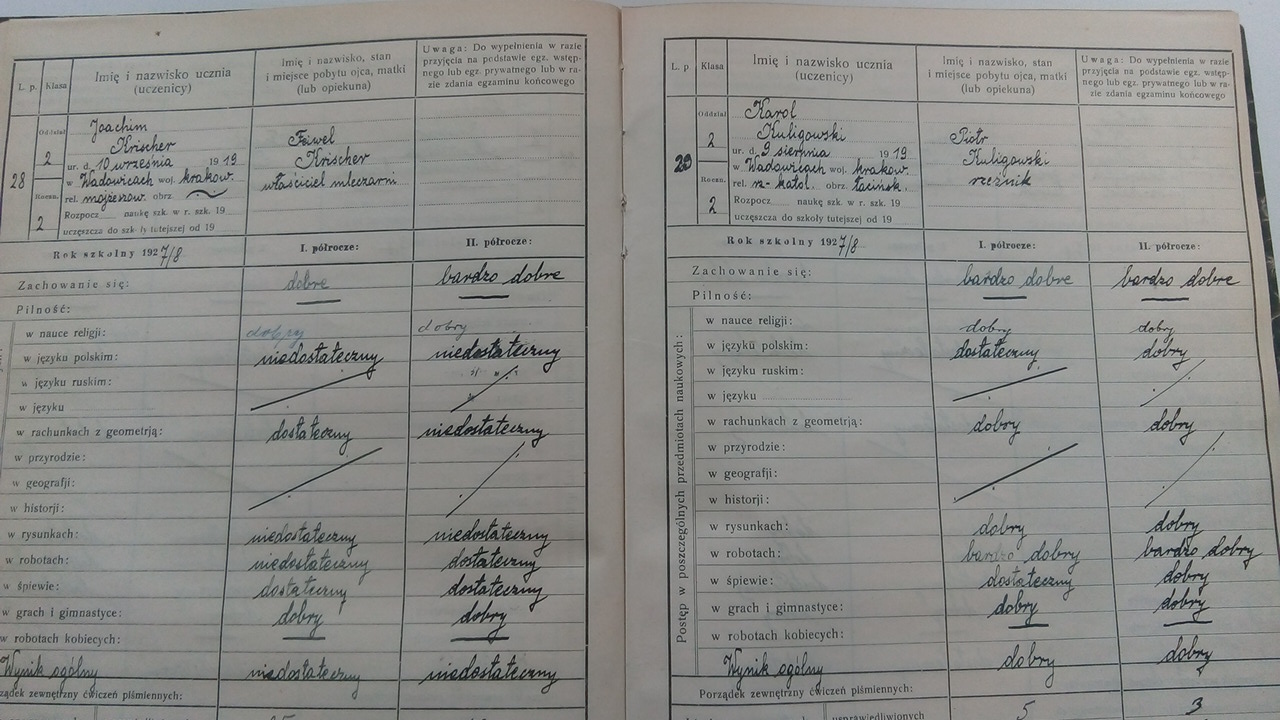 L. p.
Klasa
Imię i nazwisko ucznia
(uczenicy)
Imię i nazwisko, stan
i miejsce pobytu ojca, matki
(lub opiekuna)
Uwaga: Do wypełnienia w razie
przyjęcia na podstawie egz. wstęp-
nego lub egz. prywatnego lub w ra-
zie zdania egzaminu końcowego
28
Oddział
2
Roczn.
2
Joachim
Krischer
ur. d. 10 września 1919
w Wadowicach woj. krakow.
rel. mojżeszow. obrz.
Rozpocz. naukę szk. w r. szk. 19
uczęszcza do szkoły tutejszej od 19
Krischer
właściciel mleczarni
Rok szkolny 1927/8
I. półrocze:
II. półrocze:
Zachowanie się: dobre bardzo dobre
Pilność:
w nauce religji: dobry dobry
w języku polskim: niedostateczny niedostateczny
w języku ruskim:
w języku
w rachunkach z geometrją: dostateczny niedostateczny
w przyrodzie:
w geografji:
w historji:
w rysunkach: niedostateczny niedostateczny
w robotach: niedostateczny dostateczny
w śpiewie: dostateczny dostateczny
w grach i gimnastyce: dobry dobry
w robotach kobiecych:
Wynik ogólny niedostateczny niedostateczny
zewnętrzny ćwiczeń piśmiennych:
L. p
Klasa
Imię i nazwisko ucznia
(uczenicy)
Imię i nazwisko, stan
i miejsce pobytu ojca, matki
(lub opiekuna)
Uwaga: Do wypełnienia w razie
przyjęcia na podstawie egz. wstęp-
nego lub egz. prywatnego lub w ra-
zie zdania egzaminu końcowego
29
Oddział
2
Roczn.
2
Karol
Kuligowski
ur. d. 9 sierpnia 1919
w Wadowicach woj. krakow.
rel. rz-katol. obrz. łacińsk.
Rozpocz. naukę szk. w r. szk. 19
uczęszcza do szkoły tutejszej od 19
Piotr
Kuligowski
rzeźnik
Rok szkolny 1927/8
I. półrocze:
II. półrocze:
Zachowanie się: bardzo dobre bardzo dobre
Pilność:
Postęp w poszczególnych przedmiotach naukowych:
w nauce religji: dobry dobry
w języku polskim: dostateczny dobry
w języku ruskim:
w języku
w rachunkach z geometrją: dobry dobry
w przyrodzie:
w geografji:
w historji:
w rysunkach: dobry dobry
w robotach: bardzo dobry bardzo dobry
w śpiewie: dostateczny dobry
w grach i gimnastyce: dobry dobry
w robotach kobiecych:
Wynik ogólny dobry dobry
Porządek zewnętrzny ćwiczeń piśmiennych:
usprawiedliwionych 5 3